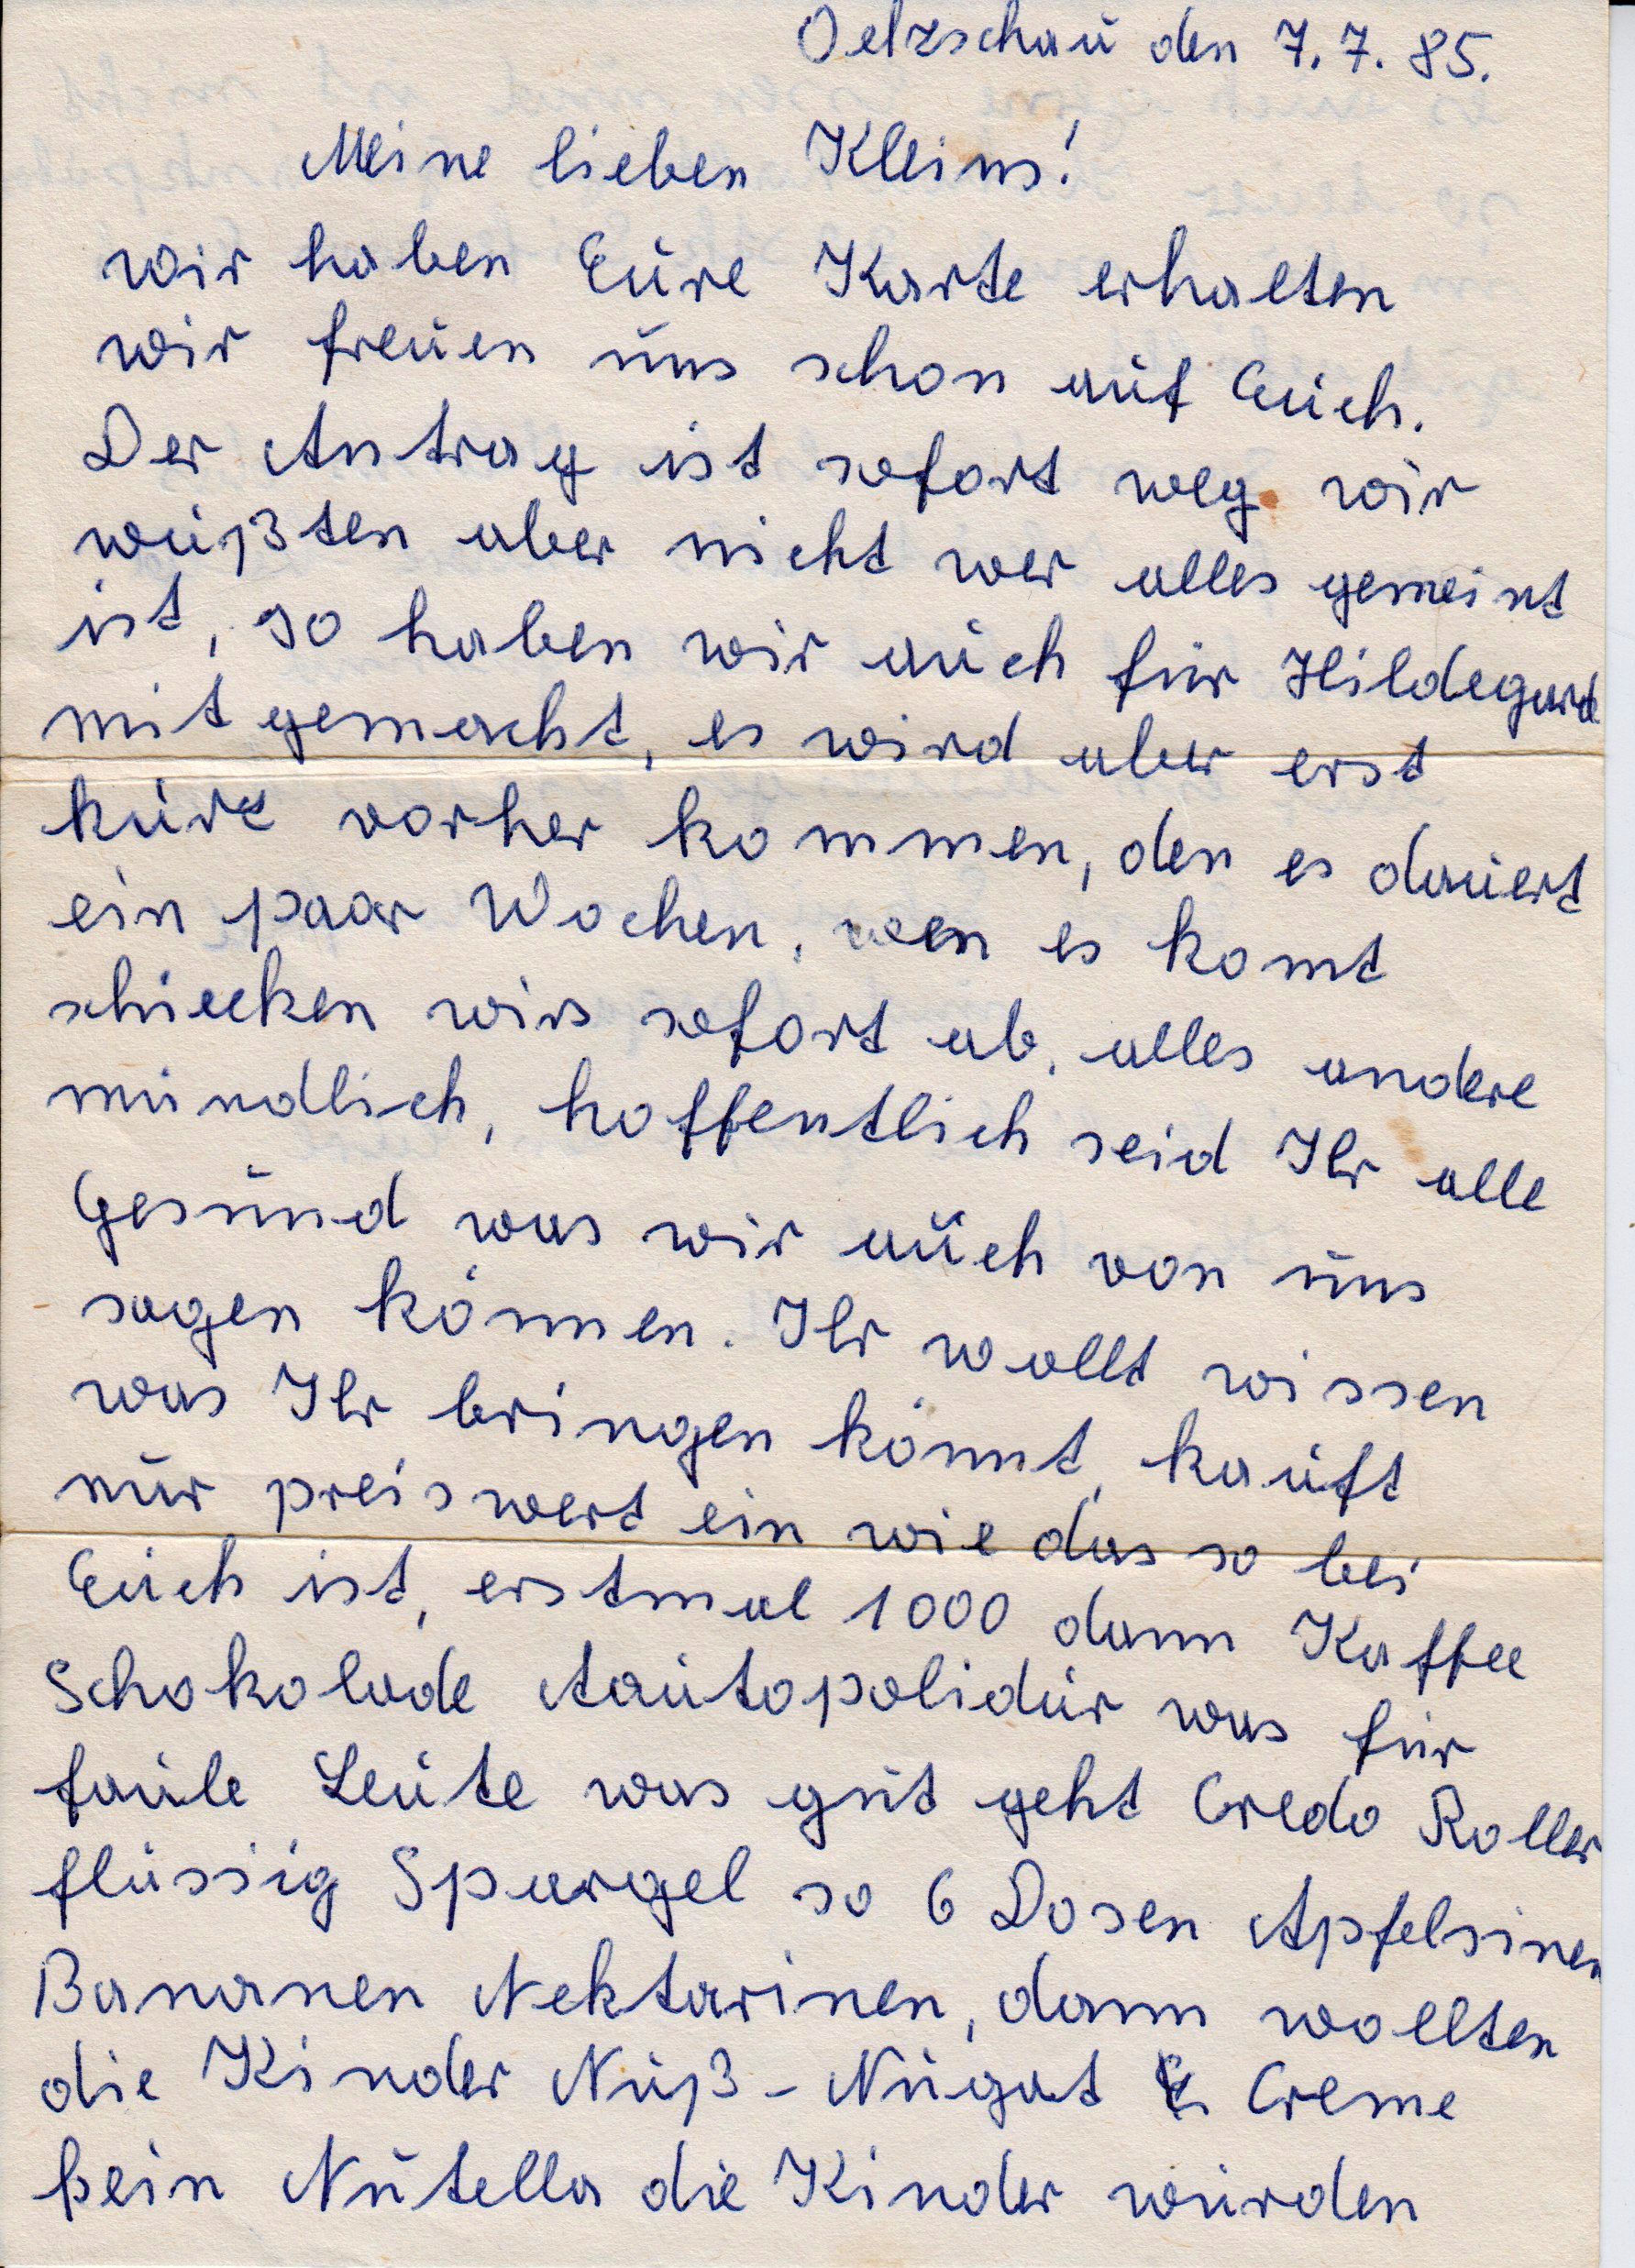 Oelzschau den 7.7.85.
Meine lieben Kleins!
wir haben Eure Karte erhalten
wir freuen uns schon auf Euch.
Der Antrag ist sofort weg wir
wußten aber nicht wer alles gemeint
ist, so haben wir auch für Hildegard
mit gemacht, es wird aber erst
kurz vorher kommen, den es dauert
ein paar Wochen, wen es komt
schiecken wirs sofort ab, alles andere
mündlich, hoffentlich seid Ihr alle
Gesund was wir auch von uns
sagen können. Ihr wollt wissen
was Ihr bringen könnt, kauft
nur preiswert ein wie das so bei
Euch ist, erstmal 1000 dann Kaffee
Schokolade Aautopolidur was für
faule Leute was gut geht Credo Roller
flüssig Spargel so 6 Dosen Apfelsinen
Bananen Nektarinen, dann wollten
die Kinder Nuß-Nugat Creme
kein Nutella die Kinder würden